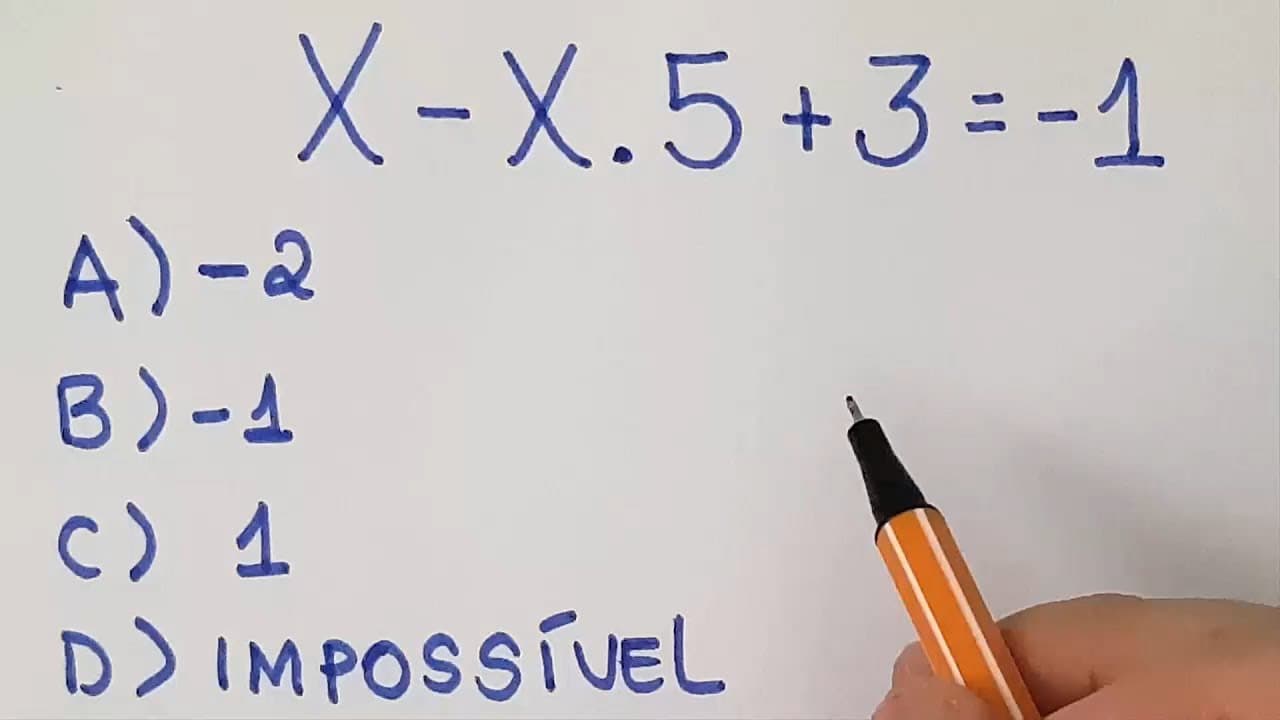 X - X . 5 + 3 = - 1
A) - 2
B) - 1
C) 1
D) IMPOSSÍVEL